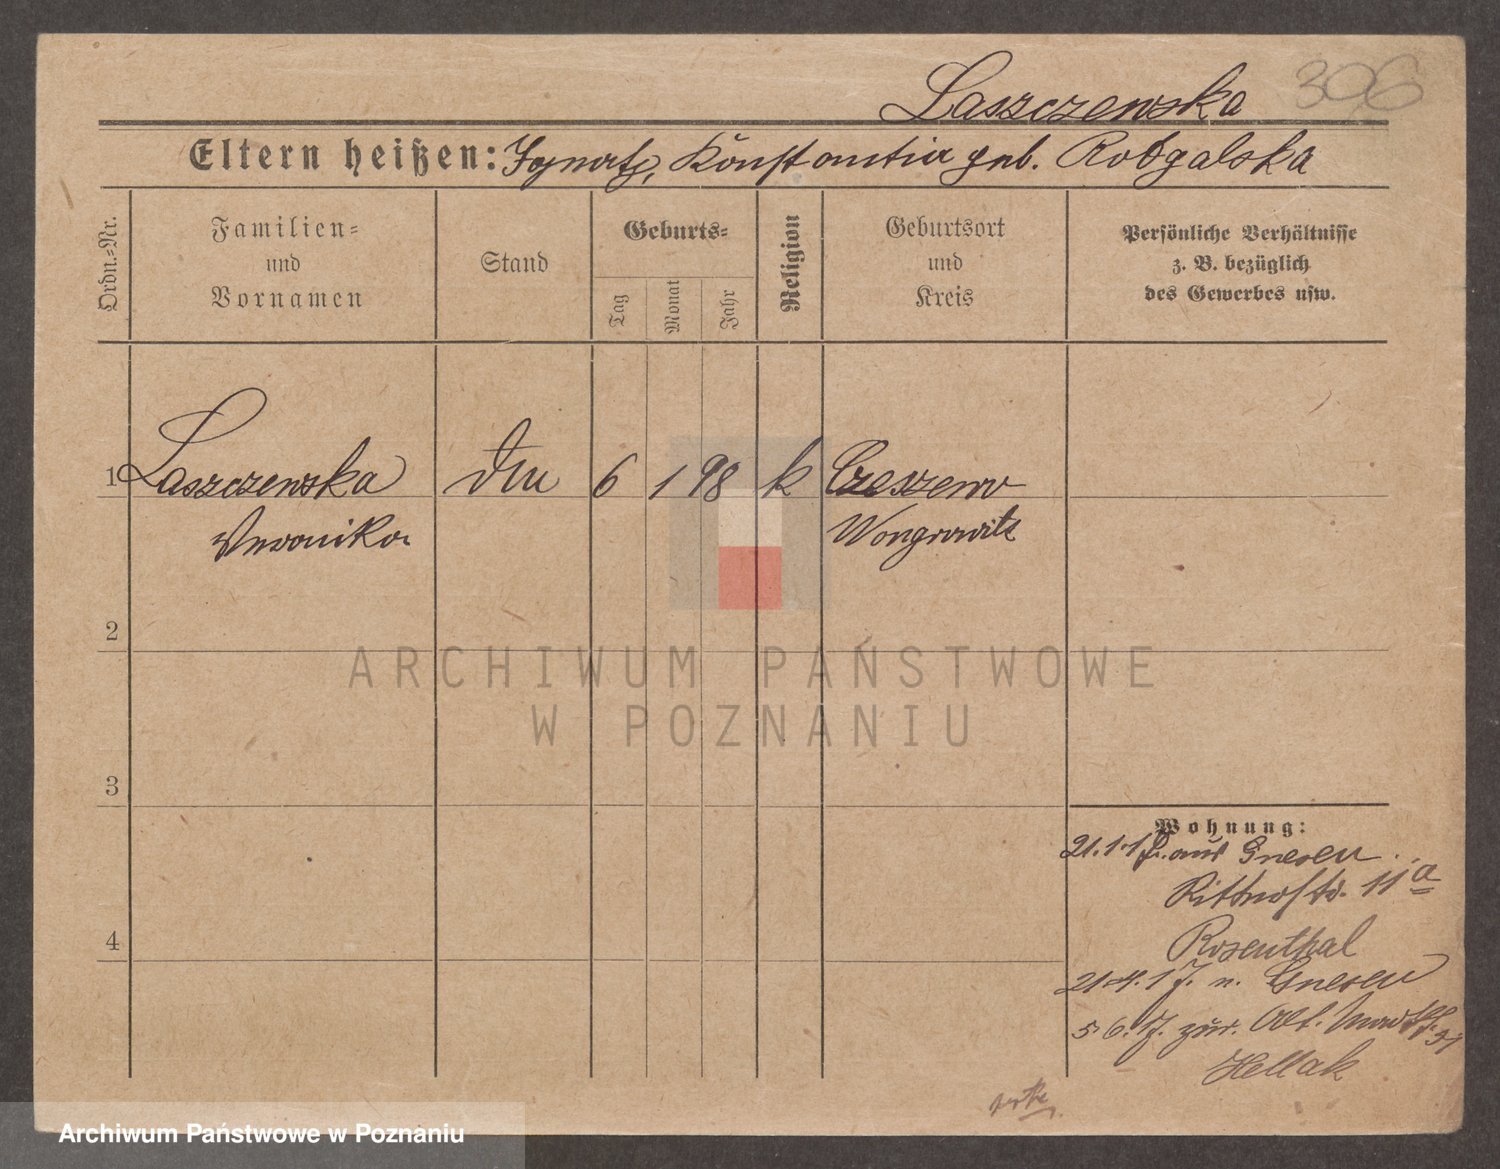 306
Laszczewska
Eltern heißen: Ignatz, Konstantia geb. Robgalska
Ordn.-Nr.
Familien-
und
Vornamen
Stand
Geburts-
Tag
Monat
Jahr
Religion
Geburtsort
und
Kreis
Persönliche Verhältnisse
z. B. bezüglich
des Gewerbes usw.
1 Laszczewska 6 1 98 k Czeszewo
Veronika Wongrowitz
2
3
4
Wohnung:
21.1.17. aus Gnesen
Ritterstr. 11a
Rosenthal
21.4.17. n. Gnesen
5.6.17. zur. Alt. Markt
Hellak
ARCHIWUM PAŃSTWOWE
W POZNANIU
Archiwum Państwowe w Poznaniu